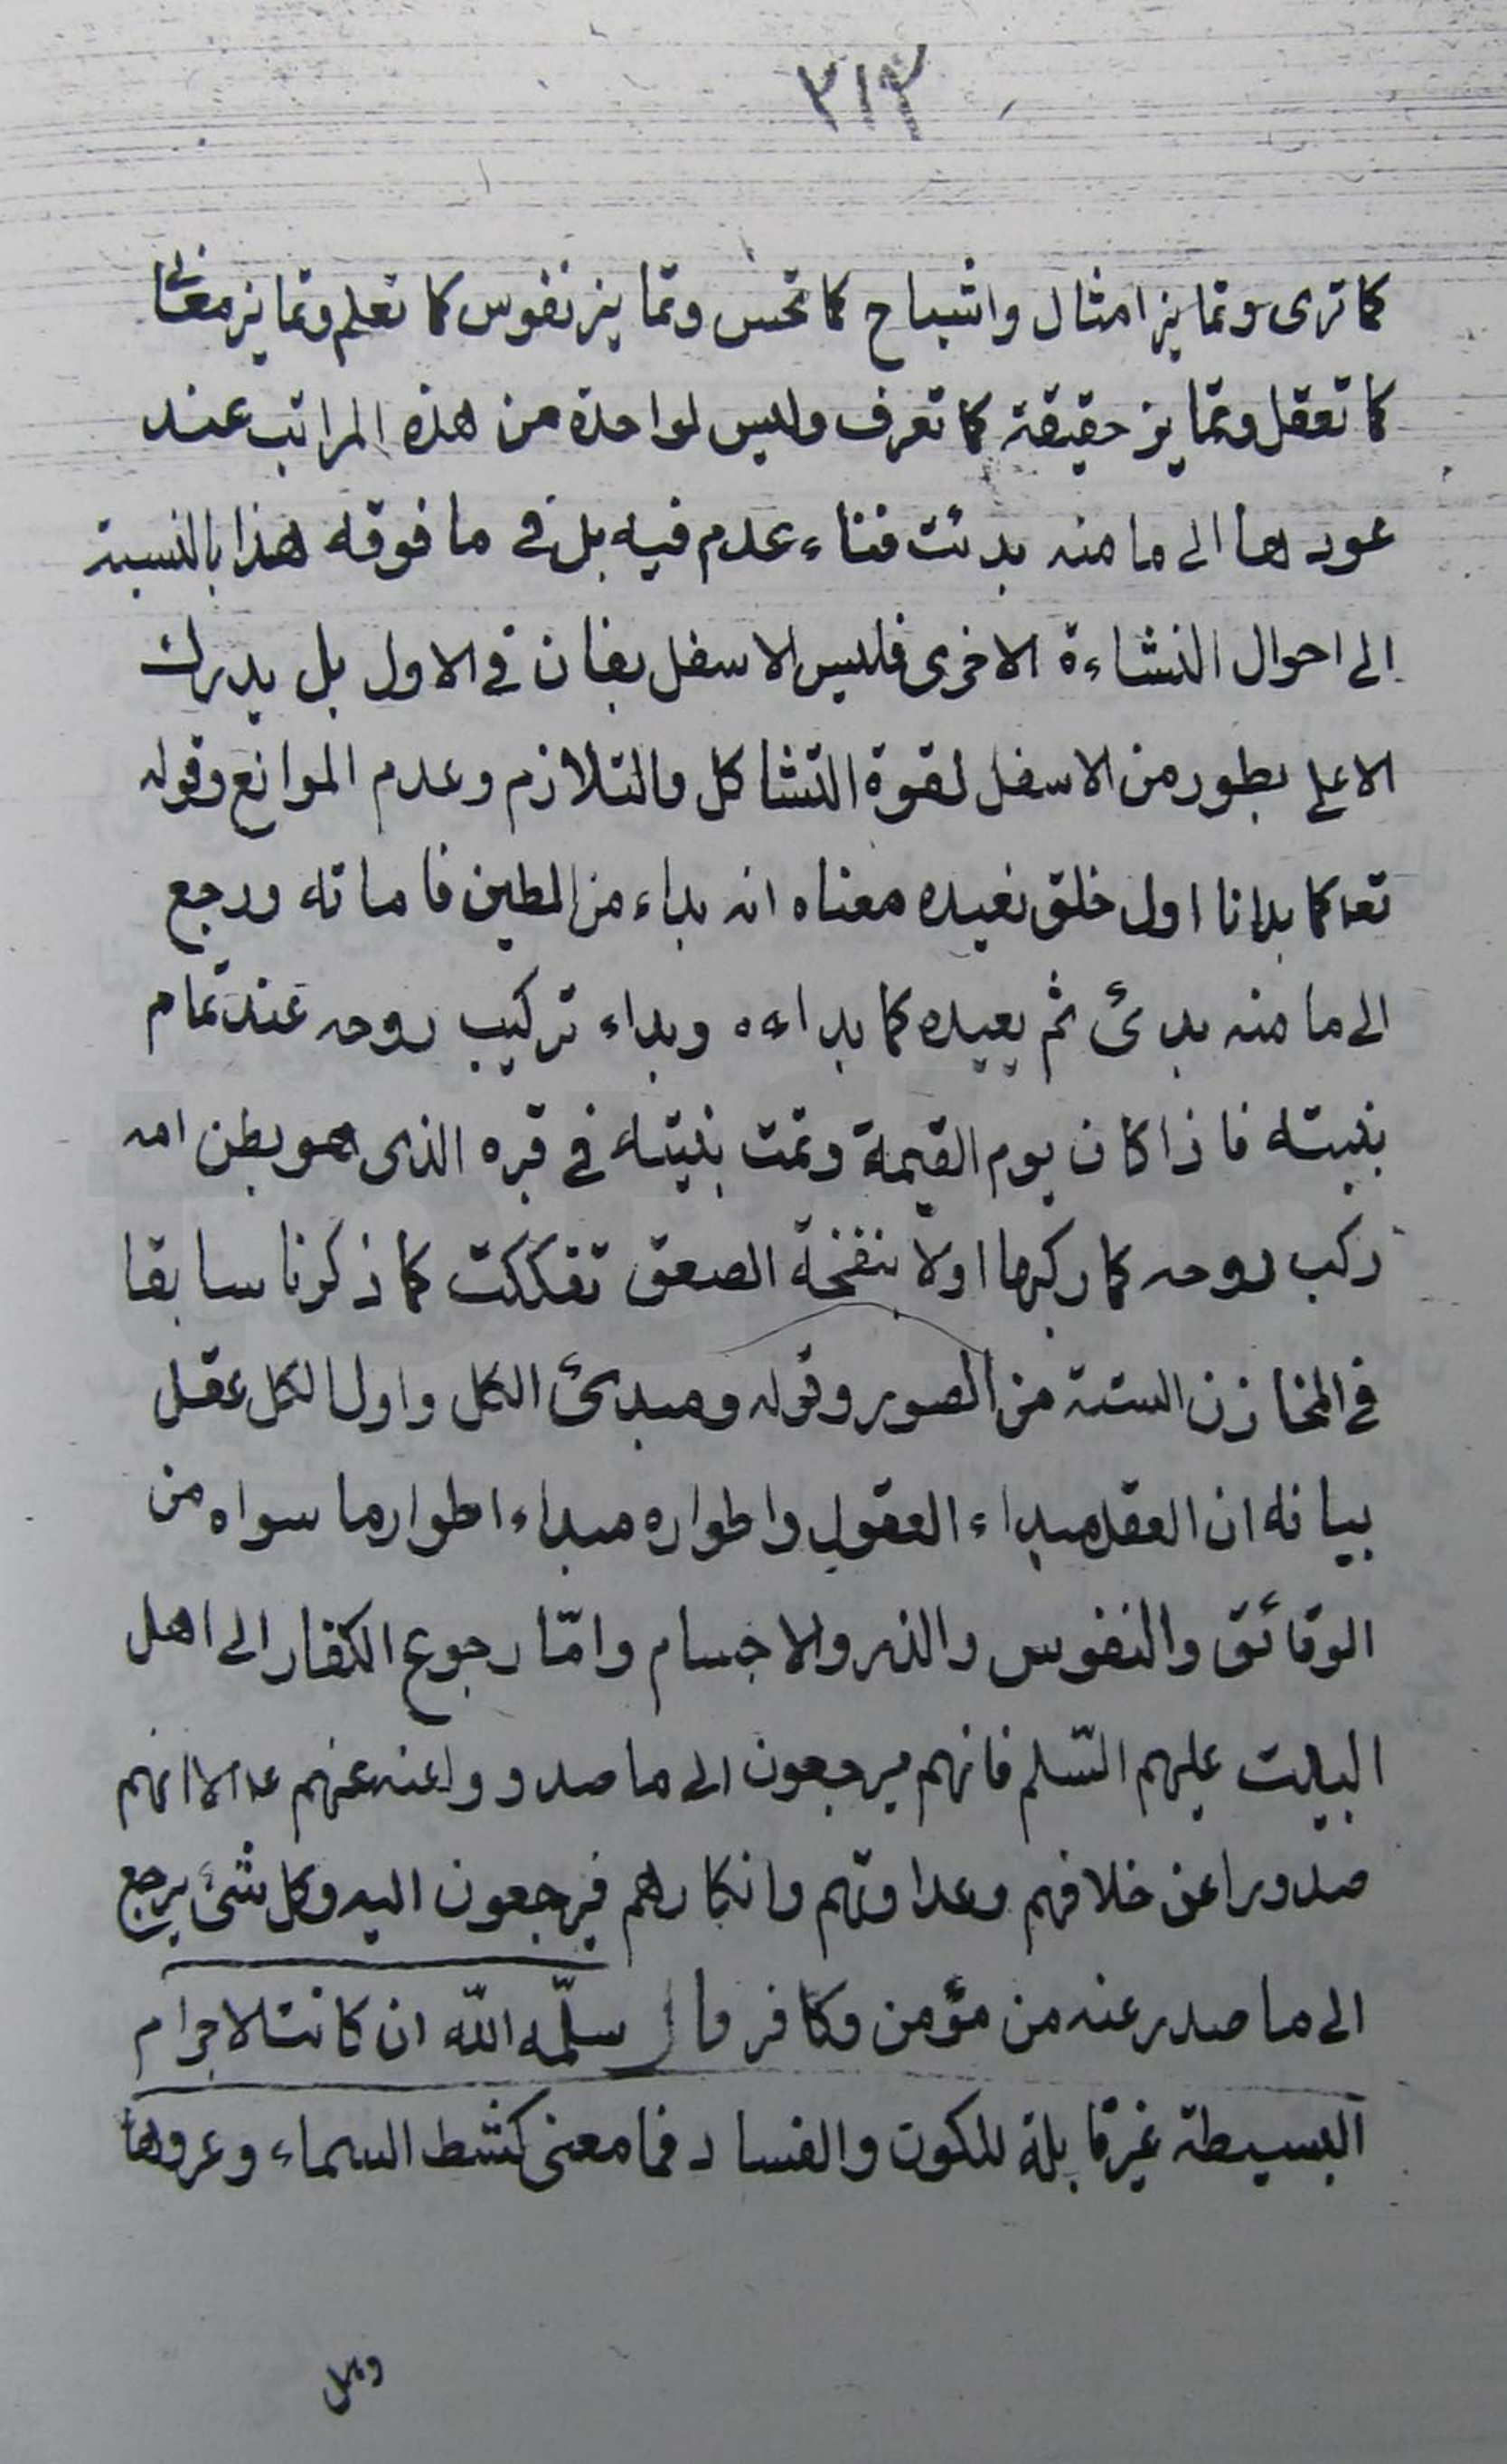 ٣١٢
كما ترى وتمايز امثال واشباح كما تحس وتمايز نفوس كما تعلم وتمايز معاني
كما تعقل وتمايز حقيقة كما تعرف وليس لواحدة من هذه المراتب عند
عودها الى ما منه بدئت فناء عدم فيه بل في ما فوقه هذا بالنسبة
الى احوال النشاءة الاخرى فليس الاسفل بفان في الاول بل يدرك
الاعلى بطور من الاسفل لقوة التشاكل والتلازم وعدم الموانع وقوله
تعا كما بدانا اول خلق نعيده معناه انه بداء من الطين فاماته ورجع
الى ما منه بدئ ثم يعيده كما بداءه وبداء تركيب روحه عند تمام
بنيته فاذا كان يوم القيمة وتمت بنيته في قبره الذى هو بطن امه
ركب روحه كما ركبها اولا بنفخة الصعق تفككت كما ذكرنا سابقا
في المخازن الستة من الصور وقوله ومبدئ الكل واول الكل عقل
بيانه ان العقل مبداء العقول واطواره مبداء اطوار ما سواه من
الرقائق والنفوس والذر والاجسام وامّا رجوع الكفار الى اهل
البيت عليهم السّلم فانهم يرجعون الى ما صدروا عنه عنهم الا انهم
صدورا عن خلافهم وعداوتهم وانكارهم فيرجعون اليه وكل شئ يرجع
الى ما صدر عنه من مؤمن وكافر قال سلّمه اللّه ان كانت الاجرام
البسيطة غير قابلة للكون والفساد فما معنى كشط السماء وعروها
وهل